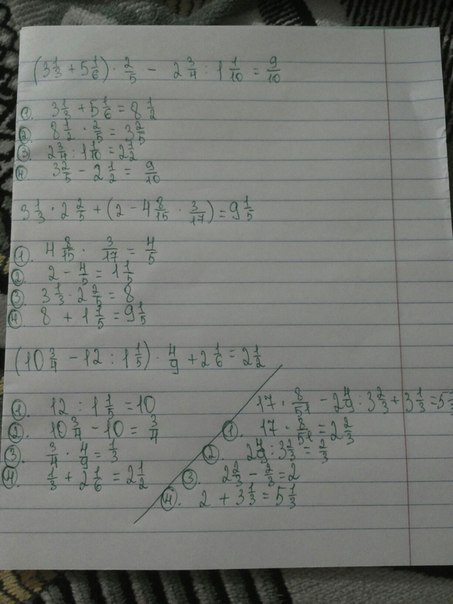 (3 1/3 + 5 1/6) · 2/5 − 2 3/4 : 1 1/10 = 9/10
1. 3 1/3 + 5 1/6 = 8 1/2
2. 8 1/2 · 2/5 = 3 2/5
3. 2 3/4 : 1 1/10 = 2 1/2
4. 3 2/5 − 2 1/2 = 9/10
3 1/3 · 2 2/5 + (2 − 4 8/15 · 3/17) = 9 1/5
1. 4 8/15 · 3/17 = 4/5
2. 2 − 4/5 = 1 1/5
3. 3 1/3 · 2 2/5 = 8
4. 8 + 1 1/5 = 9 1/5
(10 3/4 − 12 : 1 1/5) · 4/9 + 2 1/6 = 2 1/2
1. 12 : 1 1/5 = 10
2. 10 3/4 − 10 = 3/4
3. 3/4 · 4/9 = 1/3
4. 1/3 + 2 1/6 = 2 1/2
17 · 8/51 − 2 4/9 : 3 2/3 + 3 1/3 = 5 1/3
1. 17 · 8/51 = 2 2/3
2. 2 4/9 : 3 2/3 = 2/3
3. 2 2/3 − 2/3 = 2
4. 2 + 3 1/3 = 5 1/3